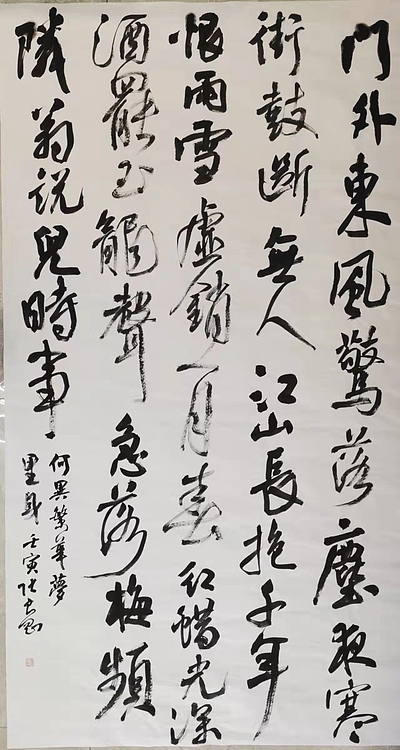 門外東風驚落塵夜寒
街鼓斷無人江山長抱千年
恨雨雪虛銷一月春紅蠟光深
酒罷玉龍聲急落梅頻
隣翁說兒時事
何異繁華夢
里身 壬寅